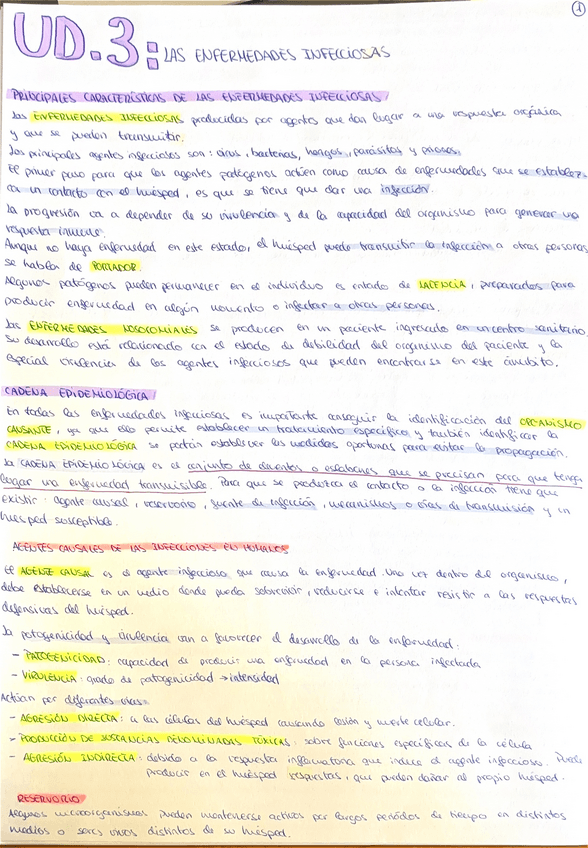 1
UD.3: LAS ENFERMEDADES INFECCIOSAS
PRINCIPALES CARACTERÍSTICAS DE LAS ENFERMEDADES INFECCIOSAS:
Las ENFERMEDADES INFECCIOSAS producidas por agentes que dan lugar a una respuesta orgánica
y que se pueden transmitir.
Los principales agentes infecciosos son: virus, bacterias, hongos, parásitos y priones.
El primer paso para que los agentes patógenos actúen como causa de enfermedades que se establez-
ca un contacto con el huésped, es que se tiene que dar una infección.
La progresión va a depender de su virulencia y de la capacidad del organismo para generar una
respuesta inmune.
Aunque no haya enfermedad en este estado, el huésped puede transmitir la infección a otras personas
se habla de PORTADOR.
Algunos patógenos pueden permanecer en el individuo es estado de LATENCIA, preparados para
producir enfermedad en algún momento o infectar a otras personas.
Las ENFERMEDADES NOSOCOMIALES se producen en un paciente ingresado en un centro sanitario.
Su desarrollo está relacionado con el estado de debilidad del organismo del paciente y la
especial virulencia de los agentes infecciosos que pueden encontrarse en este ámbito.
CADENA EPIDEMIOLÓGICA:
En todas las enfermedades infecciosas es importante conseguir la identificación del ORGANISMO
CAUSANTE, ya que ello permite establecer un tratamiento específico y también identificar la
CADENA EPIDEMIOLÓGICA se podrán establecer las medidas oportunas para evitar la propagación.
La CADENA EPIDEMIOLÓGICA es el conjunto de elementos o eslabones que se precisan para que tenga
lugar una enfermedad transmisible. Para que se produzca el contacto o la infección tiene que
existir: agente causal, reservorio, fuente de infección, mecanismos o vías de transmisión y un
huésped susceptible.
AGENTES CAUSALES DE LAS INFECCIONES EN HUMANOS
El AGENTE CAUSAL es el agente infeccioso que causa la enfermedad. Una vez dentro del organismo,
debe establecerse en un medio donde pueda sobrevivir, reducirse e intentar resistir a las respuestas
defensivas del huésped.
La patogenicidad y virulencia van a favorecer el desarrollo de la enfermedad:
- PATOGENICIDAD: capacidad de producir una enfermedad en la persona infectada
- VIRULENCIA: grado de patogenicidad → intensidad
Actúan por diferentes vías:
- AGRESIÓN DIRECTA: a las células del huésped causando lesión y muerte celular.
- PRODUCCIÓN DE SUSTANCIAS DENOMINADAS TÓXICAS: sobre funciones específicas de la célula
- AGRESIÓN INDIRECTA: debido a la respuesta inflamatoria que induce el agente infeccioso. Puede
producir en el huésped respuestas, que pueden dañar al propio huésped.
RESERVORIO
Algunos microorganismos pueden mantenerse activos por largos periodos de tiempo en distintos
medios o seres vivos distintos de su huésped.